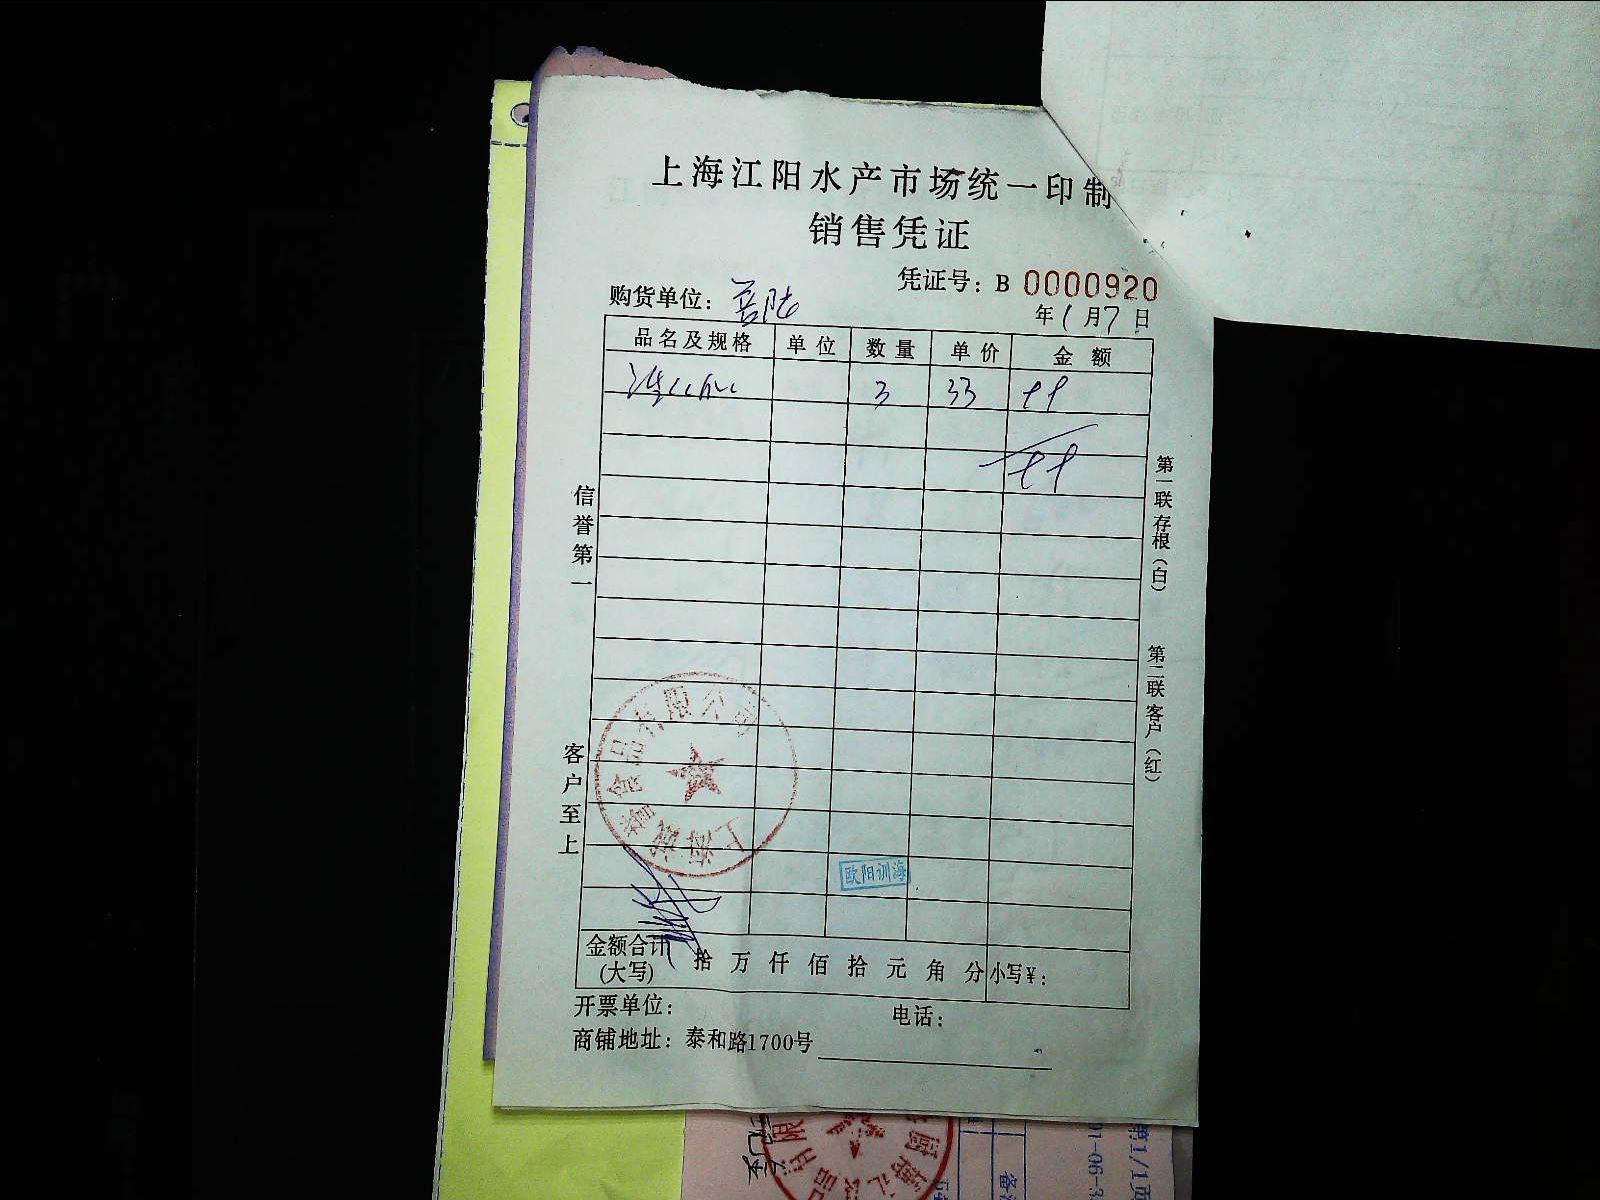 上海江阳水产市场统一印制
销售凭证
凭证号：B 0000920
购货单位：
年1月7日
品名及规格 单位 数量 单价 金额
3 33 99
99
信誉第一
客户至上
第一联存根（白）
第二联客户（红）
上海诚誉食品有限公司
欧阳训海
金额合计 拾万仟佰拾元角分 小写¥：
（大写）
开票单位： 电话：
商铺地址：泰和路1700号
第1/1页